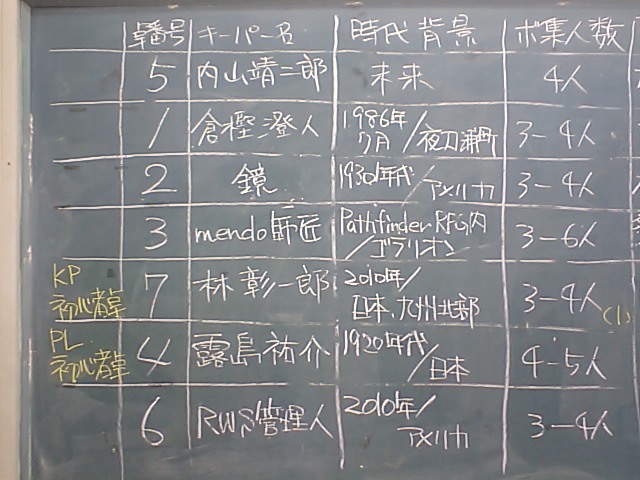 卓番号 キーパー名 時代背景 ボ集人数
5 内山靖二郎 未来 4人
1 倉樫澄人 1986年7月/夜刀浦町 3-4人
2 鏡 1930年代/アメリカ 3-4人
3 mendo師匠 Pathfinder RPG内/ゴラリオン 3-6人
KP初心者卓 7 林彰一郎 2010年/日本、九州北部 3-4人 (1)
PL初心者卓 4 露島祐介 1920年代/日本 4-5人
6 RWS管理人 2010年/アメリカ 3-4人